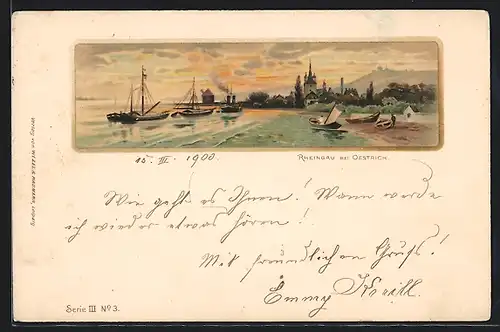 15. III. 1900.
RHEINGAU BEI OESTRICH.
Wie geht es Ihnen! Wann werde
ich wieder etwas hören!
Mit freundlichem Gruß!
Emmy
Serie III Nº 3.
Verlag von WEZEL & NAUMANN, Leipzig.